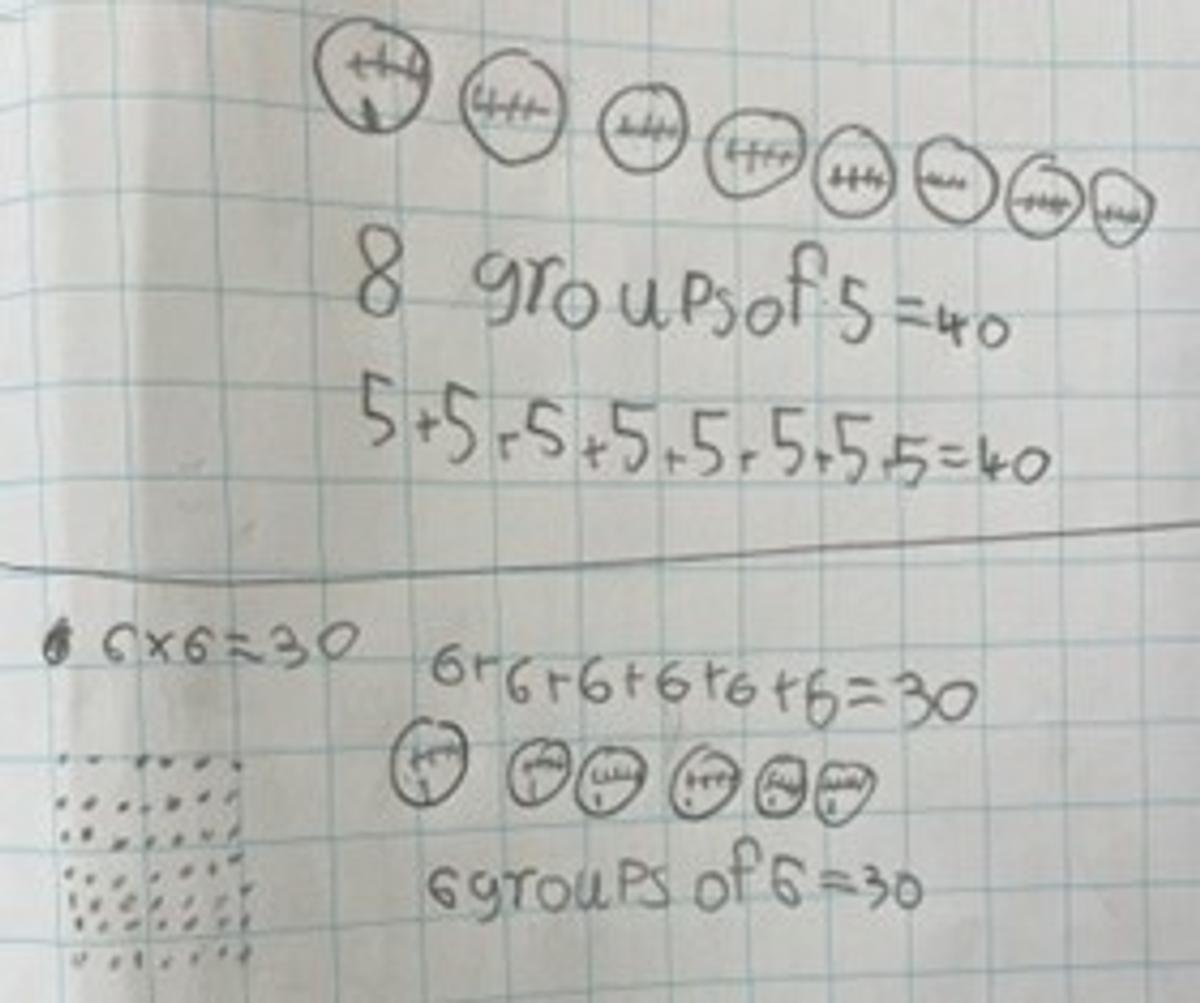 8 groups of 5 = 40
5+5+5+5+5+5+5+5=40
6x6=30
6+6+6+6+6+6=30
6 groups of 6 = 30